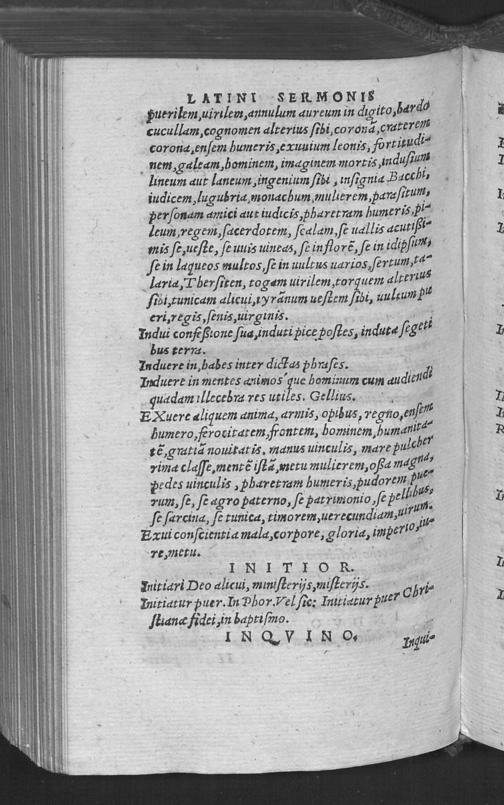 LATINI SERMONIS
puerilem,uirilem,annulum aureum in digito,bardo
cucullam,cognomen alterius sibi,coronã,craterem
corona,ensem humeris,exuuium leonis, fortitudi-
nem,galeam,hominem, imaginem mortis,indusium
lineum aut laneum,ingenium sibi , insignia Bacchi,
iudicem,lugubria,monachum,mulierem,parasitum,
personam amici aut iudicis,pharetram humeris,pi-
leum,regem,sacerdotem, scalam,se uallis acutißi-
mis se,ueste, se uuis uineas, se in florẽ, se in idipsum,
se in laqueos multos,se in uultus uarios,sertum,ta-
laria,Thersiten, togam uirilem,torquem alterius
sibi,tunicam alicui,tyrãnum uestem sibi, uultum pu
eri,regis,senis,uirginis.
Indui confeßione sua,induti pice postes, indutæ segeti
bus terræ.
Induere in,habes inter dictas phrases.
Induere in mentes animos'que hominum cum audiendi
quadam illecebra res utiles. Gellius.
EXuere aliquem anima, armis, opibus, regno,ensem
humero,ferocitatem,frontem, hominem,humanita-
tẽ,gratiã nouitatis, manus uinculis, mare pulcher
rima classe,mentẽ istã,metu mulierem,oßa magna,
pedes uinculis , pharetram humeris,pudorem pue-
rum, se, se agro paterno, se patrimonio, se pellibus,
se sarcina, se tunica, timorem,uerecundiam,uirum.
Exui conscientia mala,corpore, gloria, imperio,iu-
re,metu.
INITIOR.
Initiari Deo alicui, ministerijs,misterijs.
Initiatur puer. In Phor. Vel sic: Initiatur puer Chri-
stianæ fidei,in baptismo.
INQVINO.
Inqui-